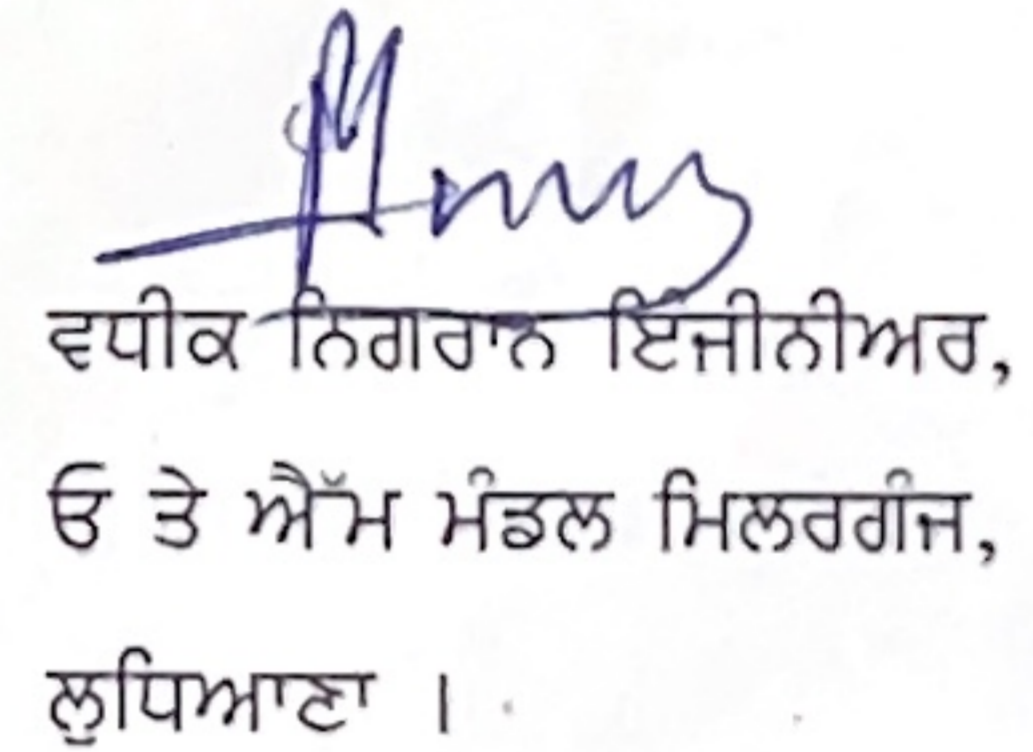 ਵਧੀਕ ਨਿਗਰਾਨ ਇੰਜੀਨੀਅਰ,
ਓ ਤੇ ਐੱਮ ਮੰਡਲ ਮਿਲਰਗੰਜ,
ਲੁਧਿਆਣਾ ।